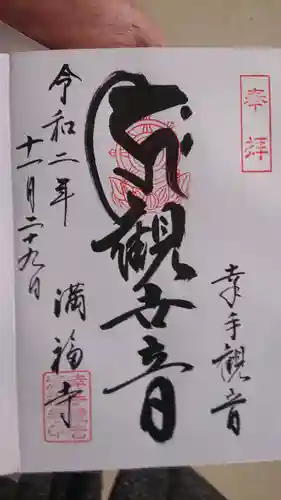 奉拝
幸手観音
観世音
令和二年
十一月二十九日
満福寺